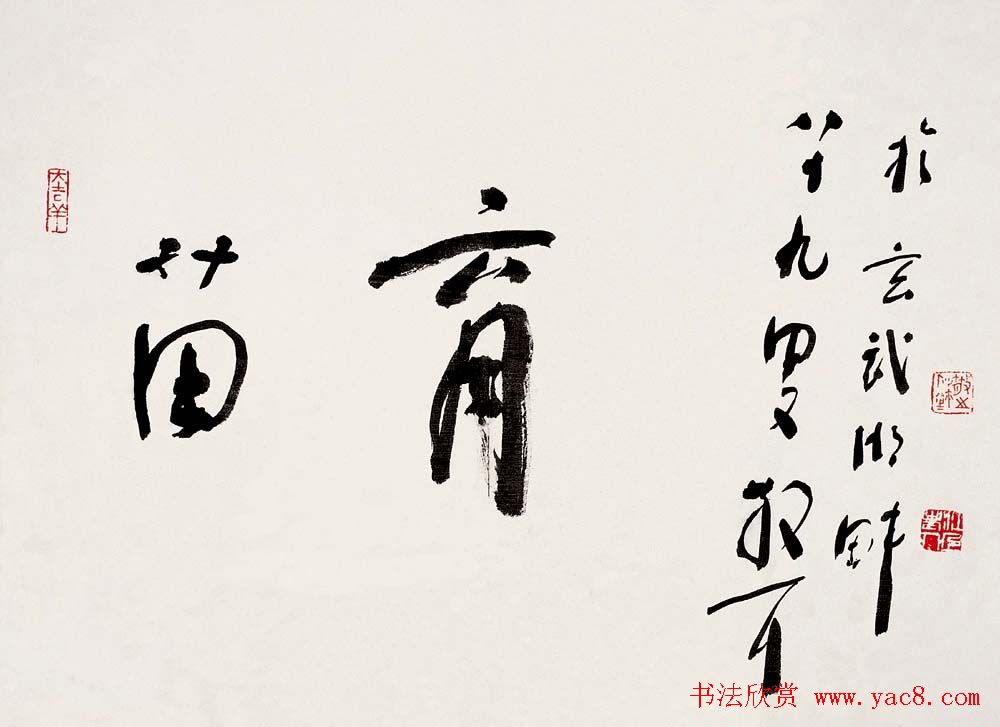 於玄武湖畔
八十九叟散耳
育苗
大吉羊
书法欣赏 www.yac8.com